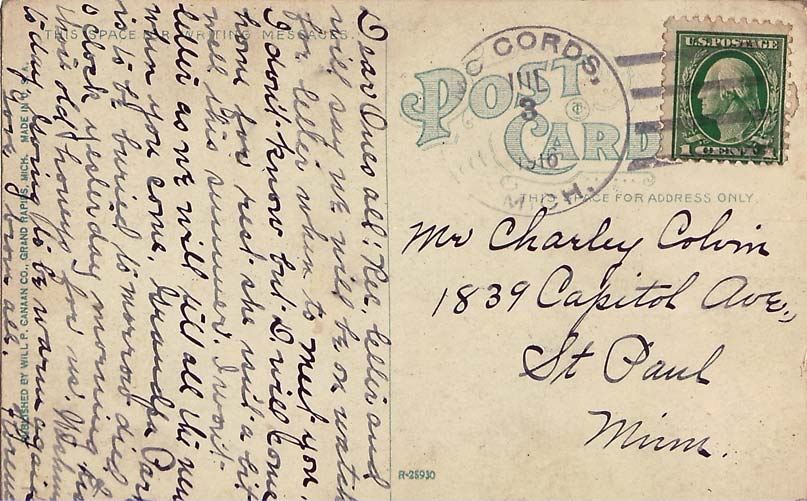 THIS SPACE FOR WRITING MESSAGES.
Dear Ones all: Rec. letter and
will say we will be on watch
for letter when to meet you.
I don't know but I will come
home for rest she isn't a bit
well this summer. I won't
letter as we will tell all the news
when you come. Grandpa Car
is to be buried to-morrow died
o'clock yesterday morning
old honeys for us.
to day going to be warm again
from all.
PUBLISHED BY WILL P. CANAAN CO., GRAND RAPIDS, MICH. MADE IN U.S.A.
POST
CARD
C CORDS,
JUL
3
A
1916
MICH.
U.S. POSTAGE
1 CENT 1
THIS SPACE FOR ADDRESS ONLY
Mr Charley Colvin
1839 Capitol Ave.,
St Paul
Minn.
R-25930